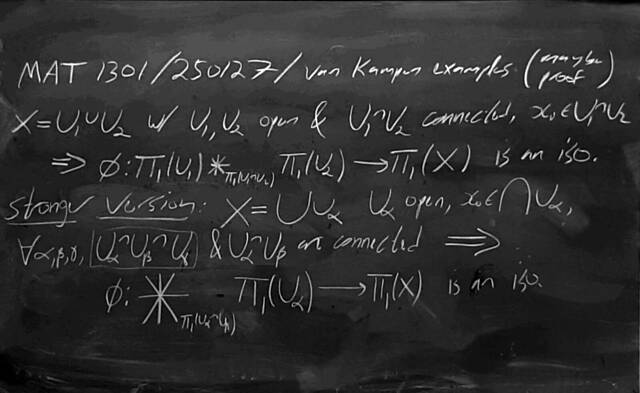 MAT 1301/250127/ van Kampen examples (maybe proof)
X=U₁∪U₂ w/ U₁,U₂ open & U₁∩U₂ connected, x₀∈U₁∩U₂
⇒ ϕ: Π₁(U₁) *_{Π₁(U₁∩U₂)} Π₁(U₂) → Π₁(X) is an iso.
Stronger Version: X=⋃Uα Uα open, x₀∈⋂Uα,
∀α,β,γ, Uα∩Uβ∩Uγ & Uα∩Uβ are connected ⇒
ϕ: *_{Π₁(Uα∩Uβ)} Π₁(Uα) → Π₁(X) is an iso.